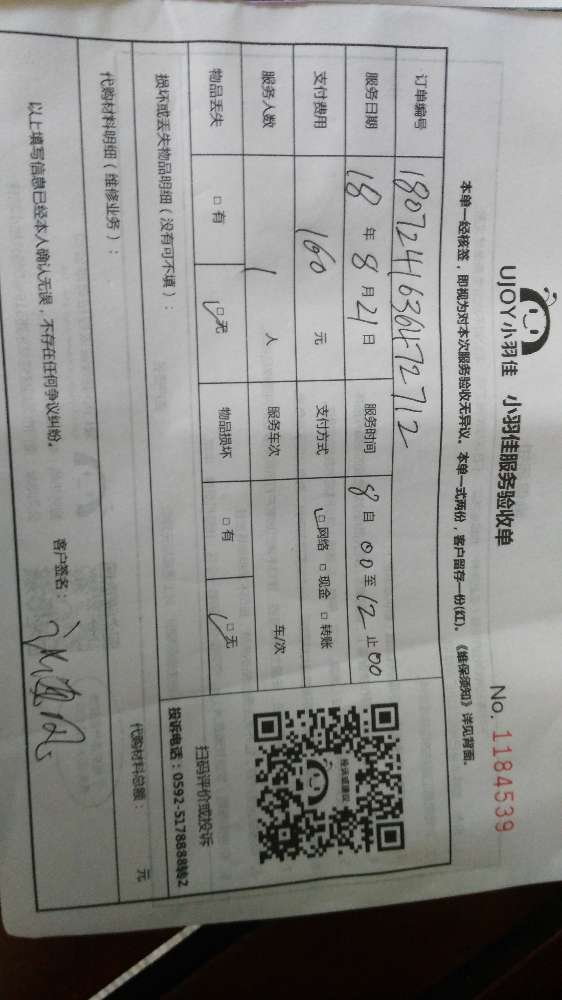 UJOY小羽佳 小羽佳服务验收单
No. 1184539
本单一经核签，即视为对本次服务验收无异议。本单一式两份，客户留存一份(红)。《维保须知》详见背面。
订单编号 180724163647271 2
服务日期 18 年 8 月 21 日 服务时间 8 自 00 至 12 止 00
支付费用 160 元 支付方式 □网络 □现金 □转账
服务人数 1 人 服务车次 车/次
物品丢失 □有 □无 物品损坏 □有 □无
损坏或丢失物品明细（没有可不填）：
扫码评价或投诉
投诉电话：0592-5178888转2
代购材料明细（维修业务）：
代购材料总额： 元
以上填写信息已经本人确认无误，不存在任何争议纠纷。
客户签名：